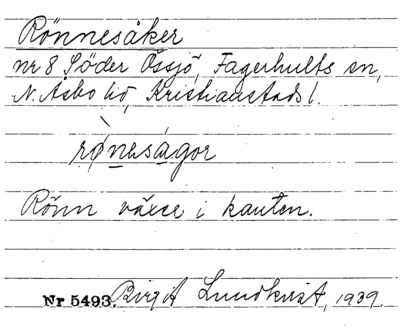 Rönnesåker
nr 8 Söder Össjö, Fagerhults sn,
N. Åsbo hd, Kristianstads l.
rø̀neságor
Rönn växer i kanten.
Nr 5493. Birgit Lundkvist, 1939.